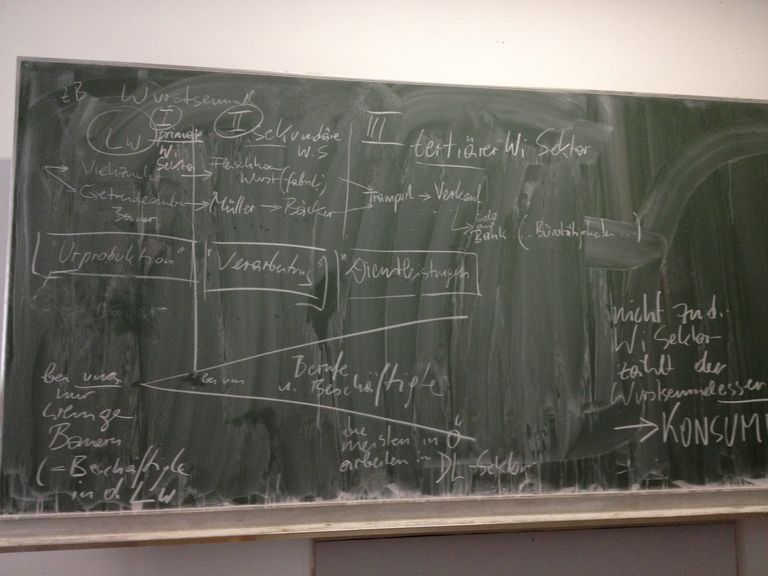 zB Wurstsemmel
LW I primäre Wi Sektor
II sekundäre W.S
III tertiärer Wi Sektor
Viehzucht
Fleischhau
Wurst (fabrik)
Getreideanbau
Müller → Bäcker
Transport → Verkauf
Geld
Bank (..Bürotätigkeiten...)
"Urproduktion"
"Verarbeitung"
"Dienstleistungen"
bei uns
nur
wenige
Bauern
(= Beschäftigte
in d. LW
bei uns
Berufe
u. Beschäftigte
die
meisten in Ö
arbeiten im DL-Sektor
nicht zu d.
Wi Sektor
zählt der
Wurstsemmelesser
→ KONSUM